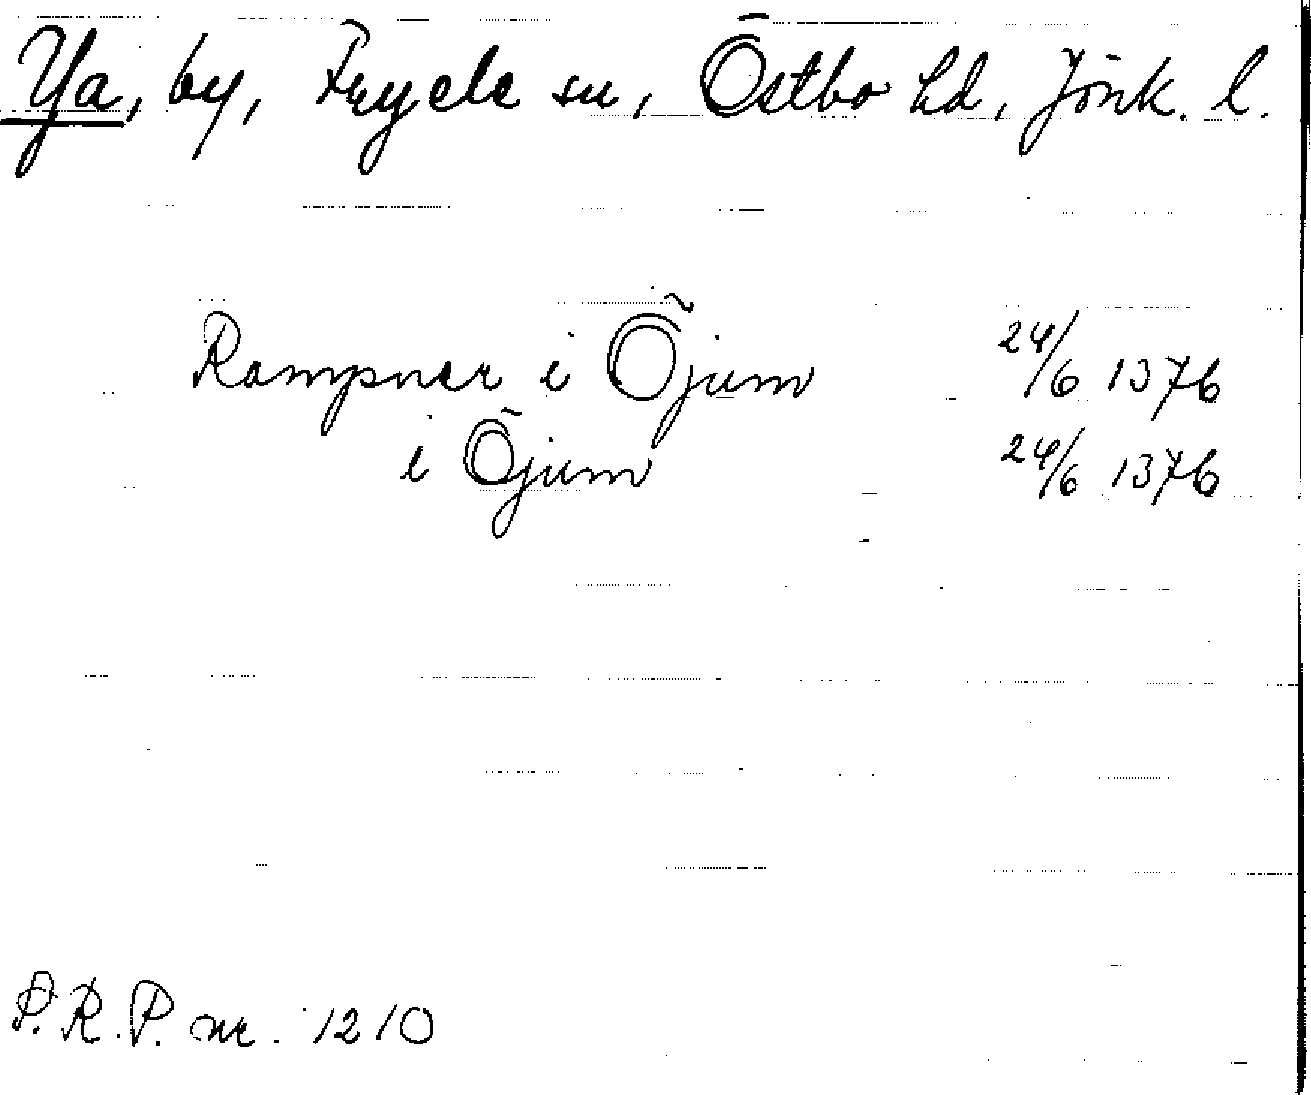 Ya, by, Fryele sn, Östbo hd, Jönk. l.
Rampner i Õjum 24/6 1376
i Õjum 24/6 1376
P.R.P. nr. 1210